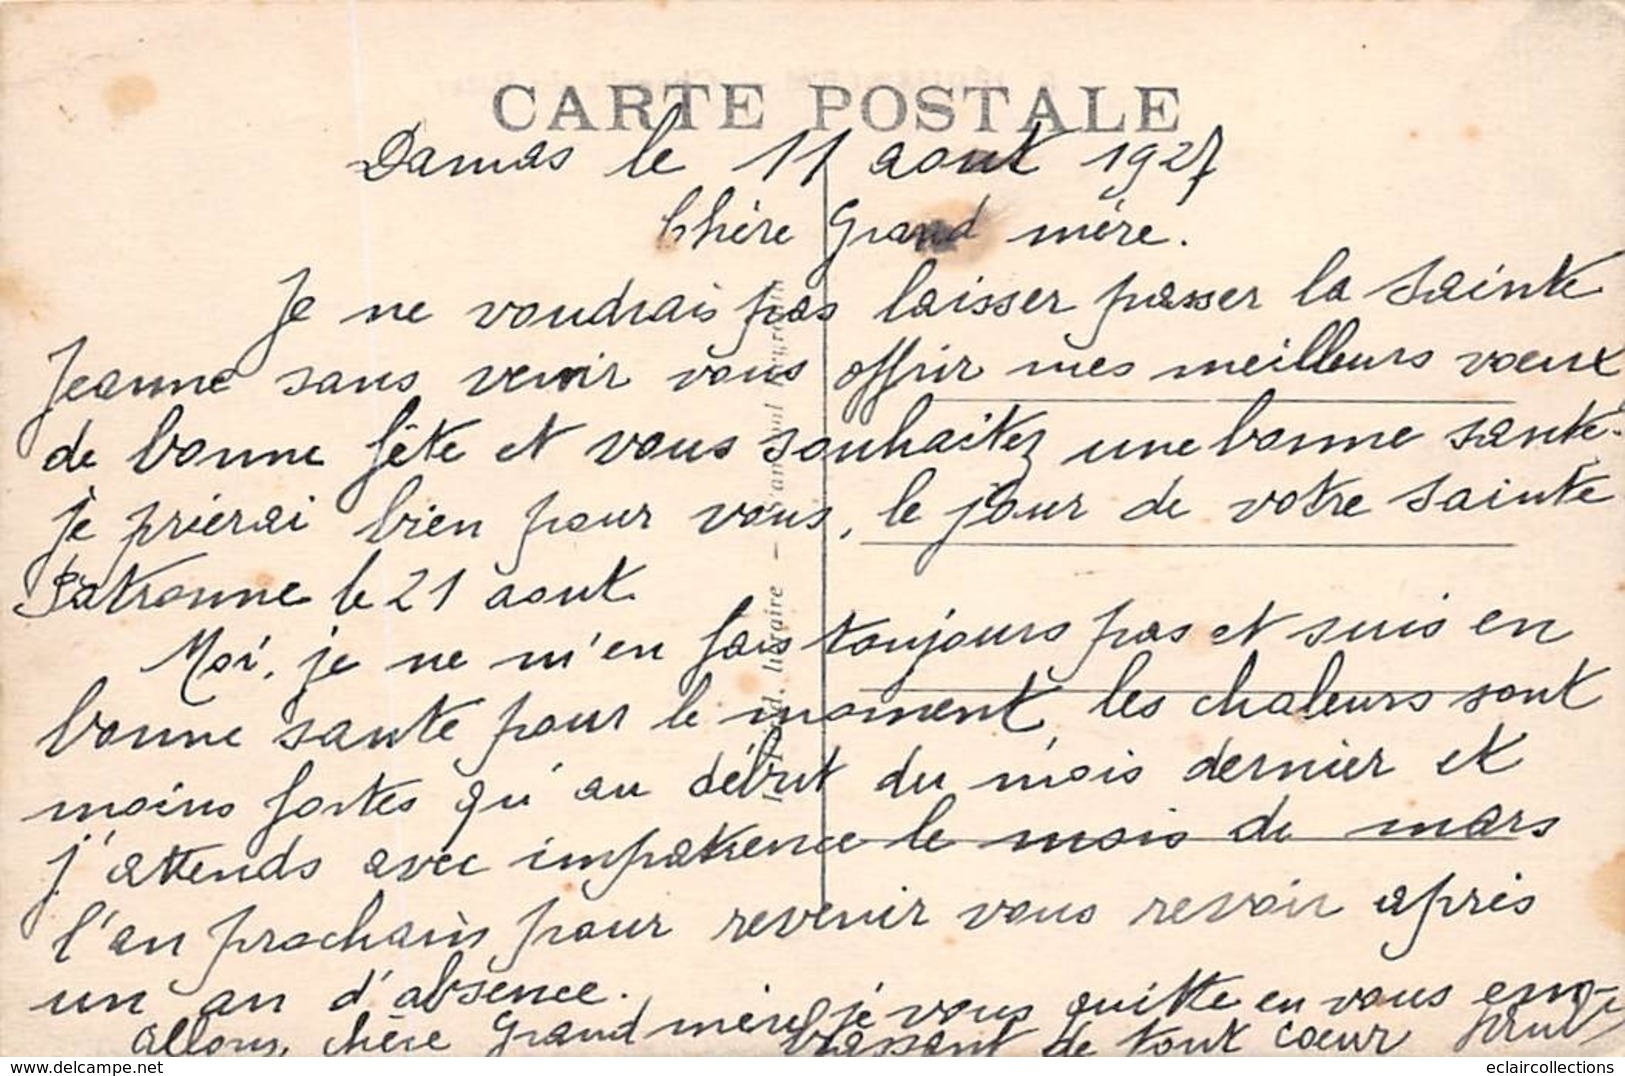 CARTE POSTALE
Damas le 11 aout 1927
Chère Grand mère.
Je ne voudrais pas laisser passer la Sainte
Jeanne sans venir vous offrir mes meilleurs voeux
de bonne fête et vous souhaitez une bonne santé.
je prierai bien pour vous, le jour de votre Sainte
Patronne le 21 aout.
Moi, je ne m'en fais toujours pas et suis en
bonne santé pour le moment, les chaleurs sont
moins fortes qu'au début du mois dernier et
j'attends avec impatience le mois de mars
l'an prochain pour revenir vous revoir après
un an d'absence.
Allons, chère Grand mère je vous quitte en vous em-
brassant de tout coeur
libraire
eclaircollections